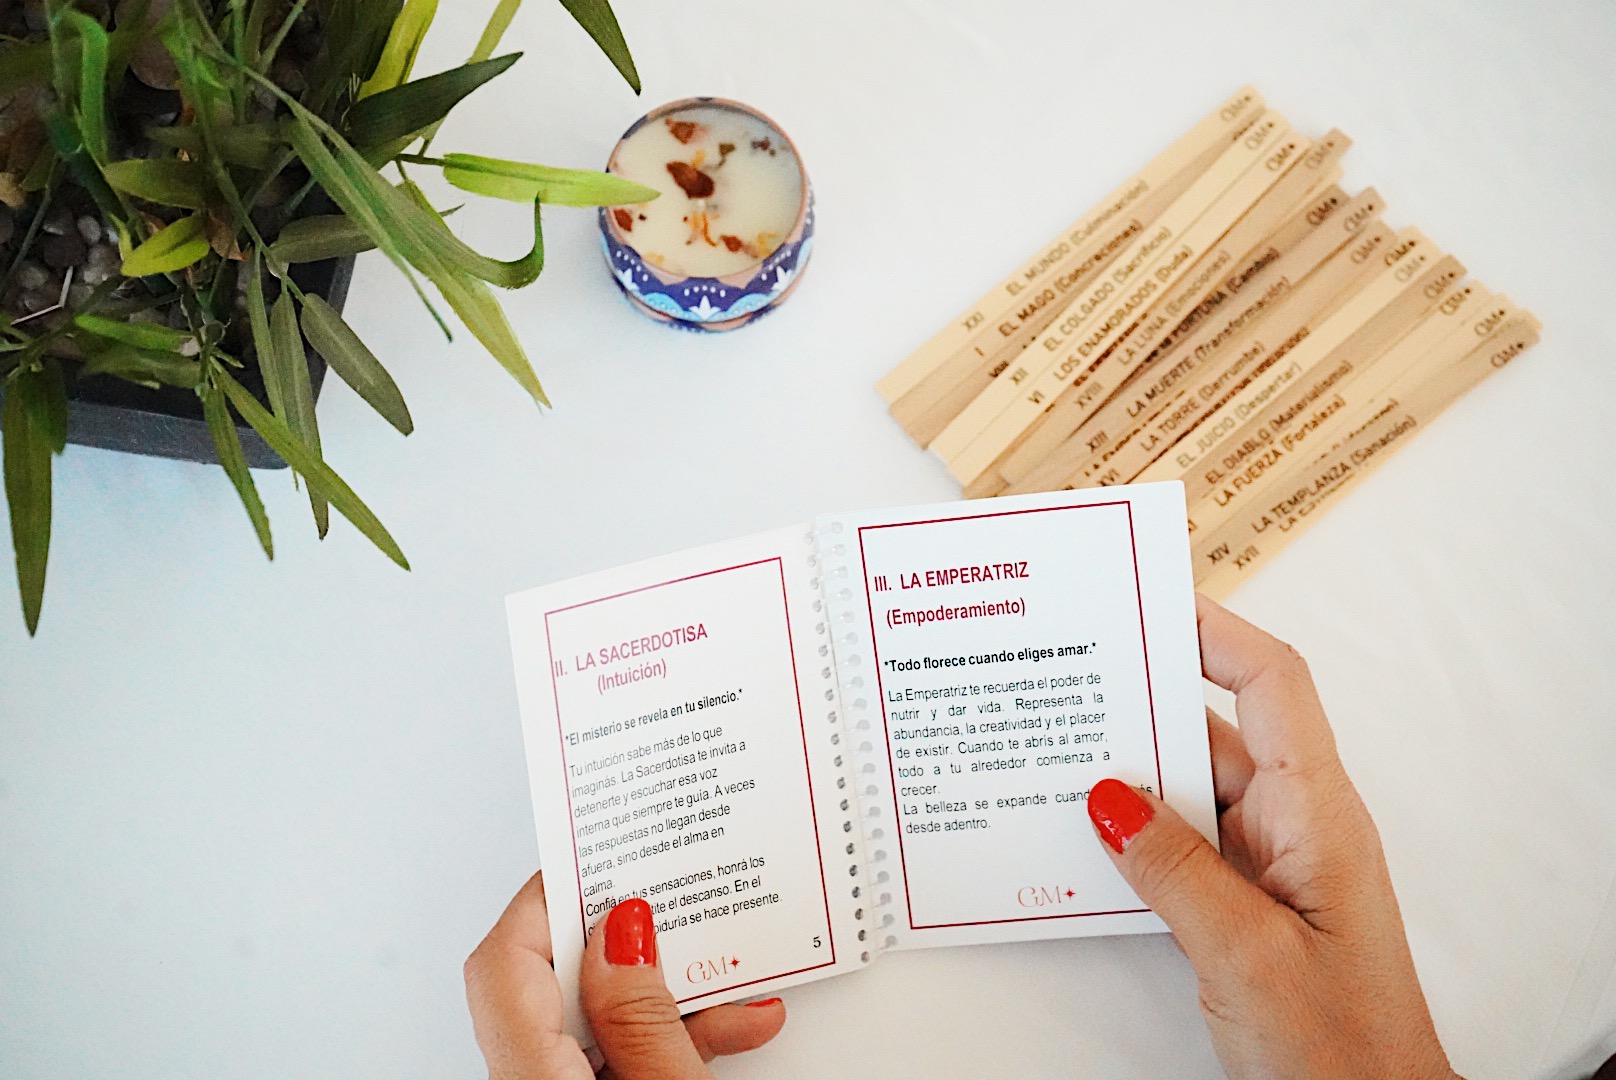 II. LA SACERDOTISA
(Intuición)
*El misterio se revela en tu silencio.*
Tu intuición sabe más de lo que
imaginás. La Sacerdotisa te invita a
detenerte y escuchar esa voz
interna que siempre te guía. A veces
las respuestas no llegan desde
afuera, sino desde el alma en
calma.
Confiá en tus sensaciones, honrá los
el descanso. En el
se hace presente.
5
GM
III. LA EMPERATRIZ
(Empoderamiento)
*Todo florece cuando eliges amar.*
La Emperatriz te recuerda el poder de
nutrir y dar vida. Representa la
abundancia, la creatividad y el placer
de existir. Cuando te abris al amor,
todo a tu alrededor comienza a
crecer.
La belleza se expande
desde adentro.
GM
XXI EL MUNDO (Culminación) GM
I EL MAGO (Concreciones) GM
XII EL COLGADO (Sacrificio) GM
VI LOS ENAMORADOS (Duda) GM
XVIII LA LUNA (Emociones)
FORTUNA (Cambio) GM
XIII LA MUERTE (Transformación) GM
XVI LA TORRE (Derrumbe) GM
EL JUICIO (Despertar) GM
EL DIABLO (Materialismo) GM
LA FUERZA (Fortaleza) GM
XIV LA TEMPLANZA (Sanación) GM
XVII GM